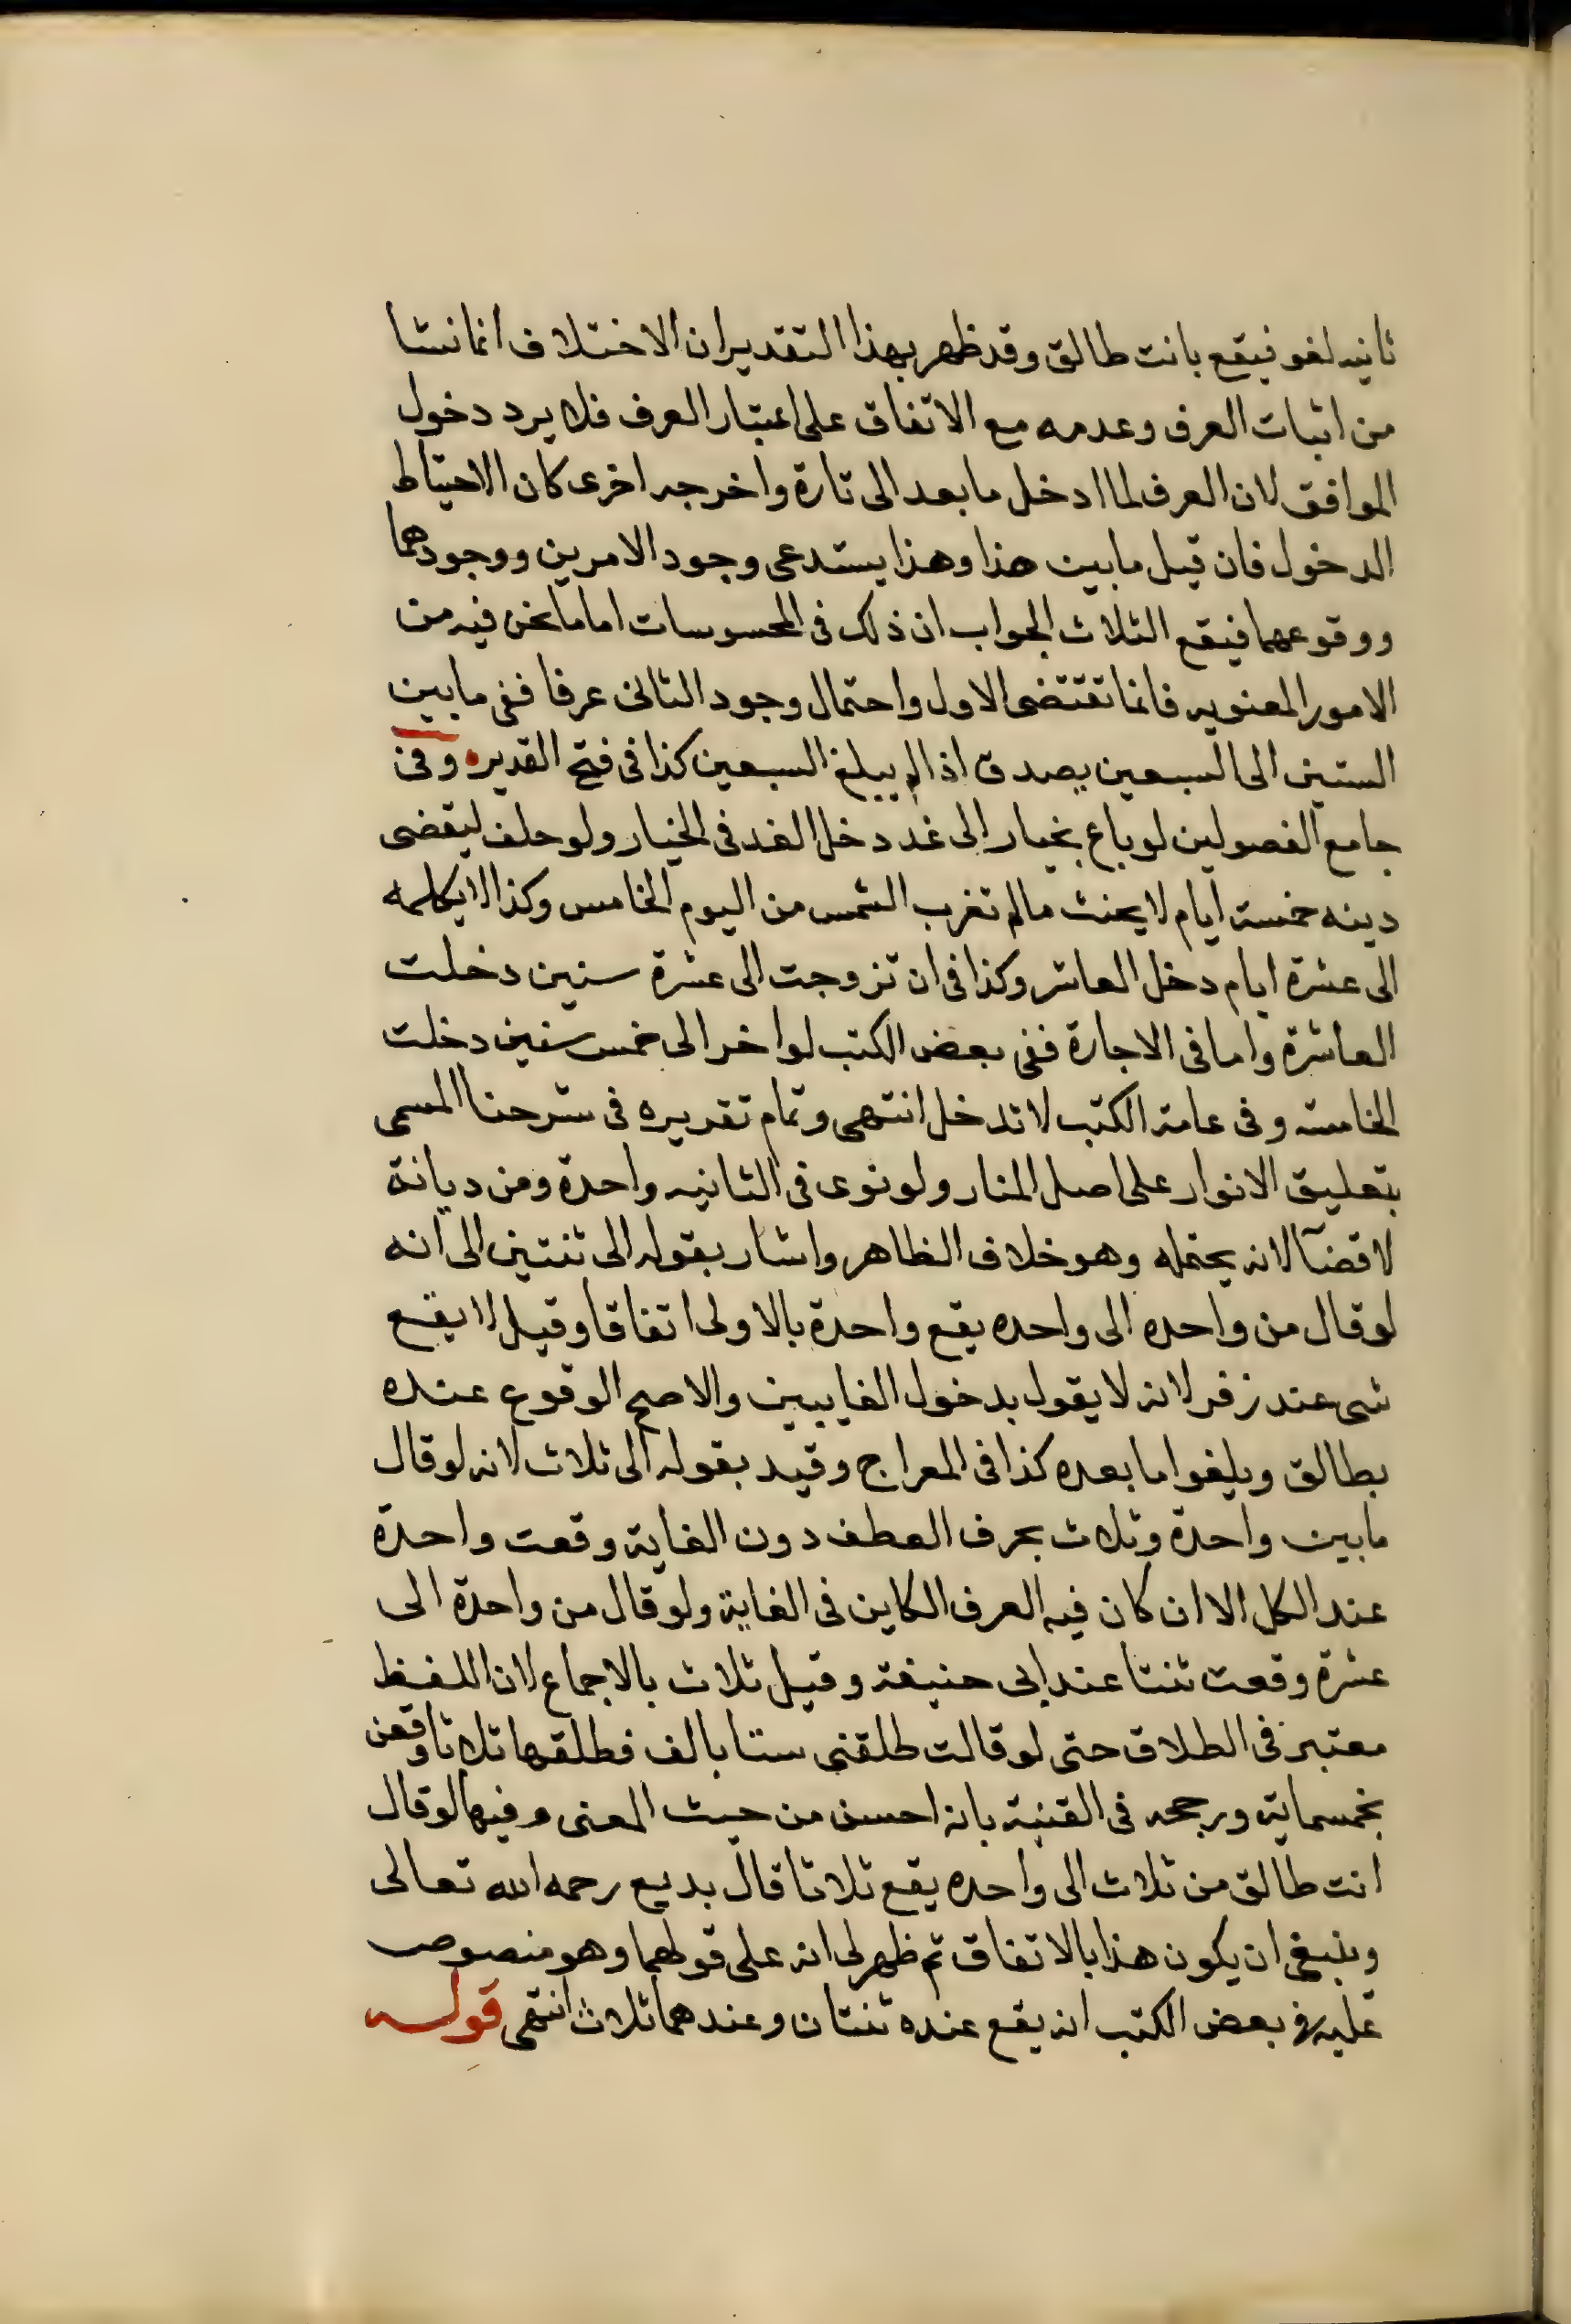 ثانيه لغو فيقع بانت طالق وقد ظهر بهذا التقدير ان الاختلاف انما نشا
من اثبات العرف وعدمه مع الاتفاق على اعتبار العرف فلا يرد دخول
المرافق لان العرف لما ادخل ما بعد الى تارة واخرجه اخرى كان الاحتياط
الدخول فان قيل ما بين هذا وهذا يستدعى وجود الامرين ووجودهما
ووقوعهما فيقع الثلاث الجواب ان ذلك فى المحسوسات اما ما نحن فيه من
الامور المعنويه فانما تقتضى الاول واحتمال وجود الثانى عرفا ففى ما بين
الستين الى السبعين يصدق اذا لم يبلغ السبعين كذا فى فتح القدير وفى
جامع الفصولين لو باع بخيار الى غد دخل الغد فى الخيار ولو حلف ليقضى
دينه خمسة ايام لا يحنث ما لم تغرب الشمس من اليوم الخامس وكذا لا يكلمه
الى عشرة ايام دخل العاشر وكذا فى ان تزوجت الى عشرة سنين دخلت
العاشرة واما فى الاجارة ففى بعض الكتب لو اخر الى خمس سنين دخلت
الخامسه وفى عامة الكتب لا تدخل انتهى وتمام تقريره فى شرحنا المسمى
بتعليق الانوار على اصل المنار ولو نوى فى الثانيه واحدة ومن ديانة
لا قضآ لانه يحتمله وهو خلاف الظاهر واشار بقوله الى ثنتين الى انه
لو قال من واحده الى واحده يقع واحدة بالاولى اتفاقا وقيل لا يقع
شى عند زفر لانه لا يقول بدخول الغايبين والاصح الوقوع عنده
بطالق ويلغوا ما بعده كذا فى المعراج وقيد بقوله الى ثلاث لانه لو قال
ما بين واحدة وثلاث بحرف العطف دون الغاية وقعت واحدة
عند الكل الا ان كان فيه العرف الكاين فى الغاية ولو قال من واحدة الى
عشرة وقعت ثنتا عند ابى حنيفة وقيل ثلاث بالاجماع لان اللفظ
معتبر فى الطلاق حتى لو قالت طلقنى ستا بالف فطلقها ثلاثا وقعن
بخمسماية ورجحه فى القنية بانه احسن من حيث المعنى وفيها لو قال
انت طالق من ثلاث الى واحده يقع ثلاثا قال بديع رحمه الله تعالى
وينبغى ان يكون هذا بالاتفاق ثم ظهر لى انه على قولهما وهو منصوص
عليه فى بعض الكتب انه يقع عنده ثنتان وعندهما ثلاث انتهى قوله